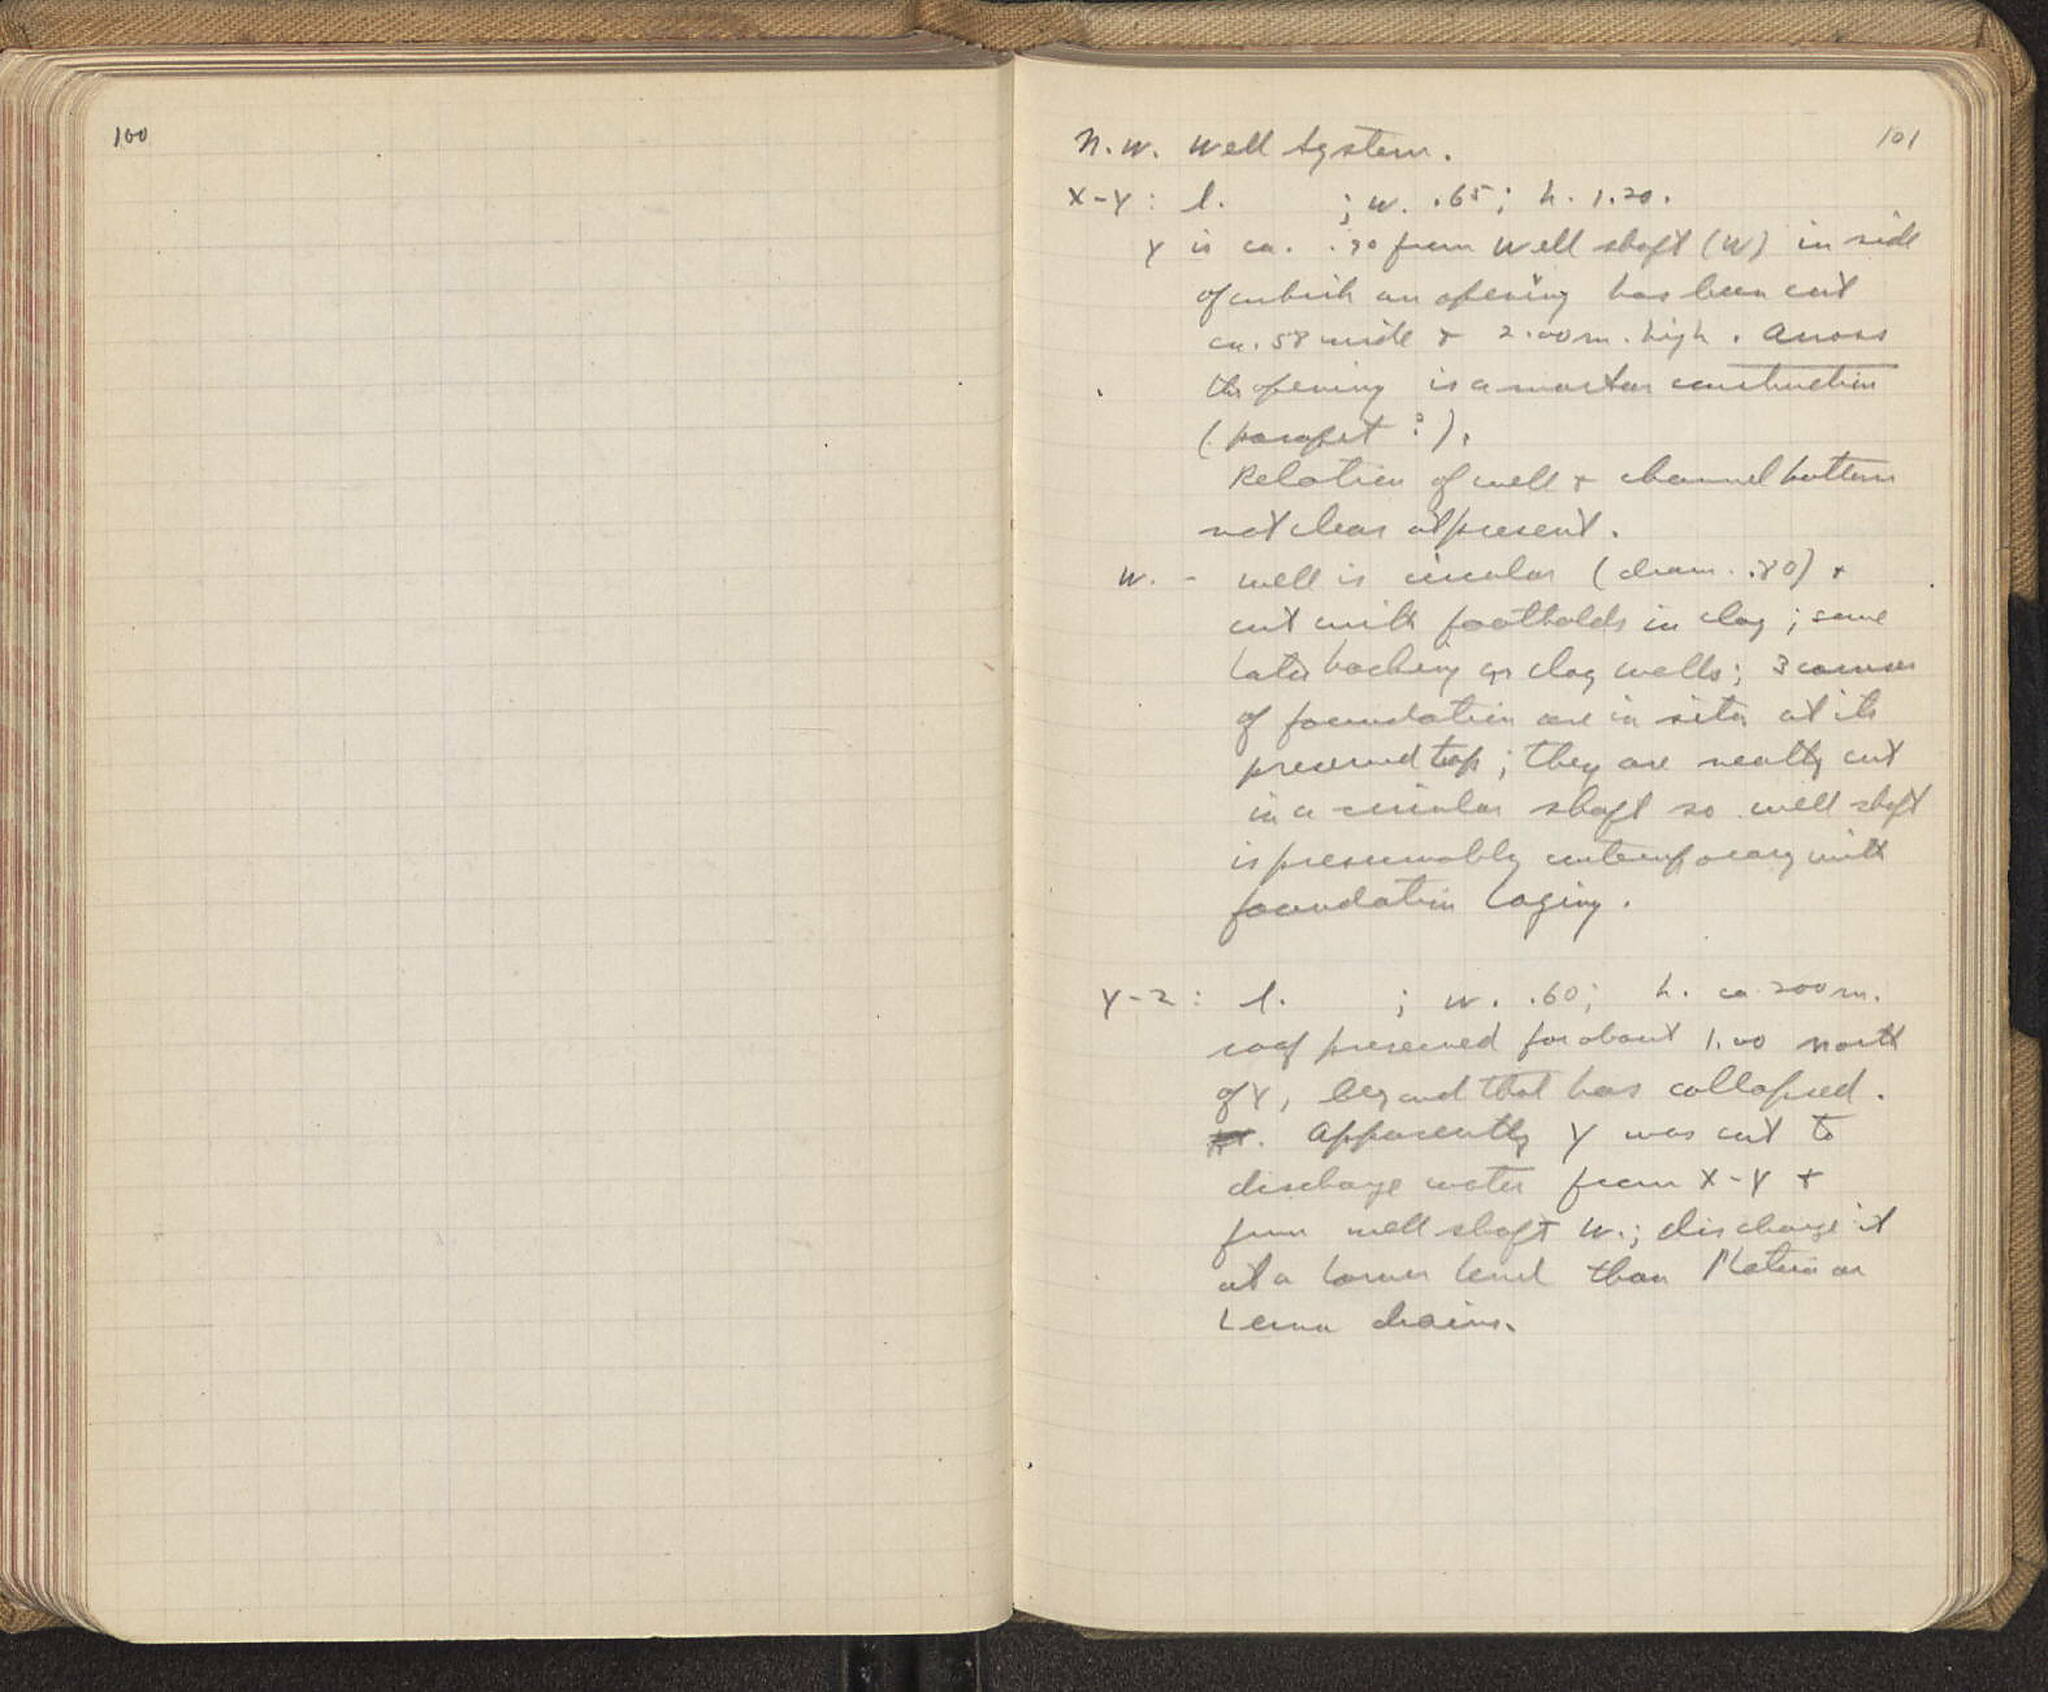 100
101
N.W. Well System.
X-Y: l. ; w. .65; h. 1.20.
Y is ca. .90 from well shaft (W) in side
of which an opening has been cut
ca. .58 wide + 2.00 m. high. Across
this opening is a mortar construction
(parapet?).
Relation of well + channel bottoms
not clear at present.
W. - well is circular (diam. .80) +
cut with footholds in clay; some
later hacking on clay walls; 3 corners
of foundation are in situ at its
preserved top; they are neatly cut
in a circular shaft so well shaft
is presumably contemporary with
foundation laying.
Y-Z: l. ; w. .60; h. ca 2.00 m.
roof preserved for about 1.00 north
of Y, beyond that has collapsed.
Apparently Y was cut to
discharge water from X-Y +
from well shaft W.; discharge it
at a lower level than or
Lerna drains.